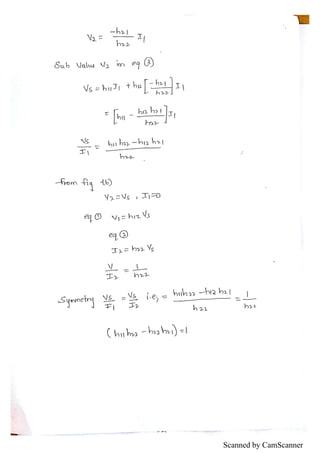 V2 = -h21/h22 I1
Sub Value V2 in eq ③
VS = h11 I1 + h12 [-h21/h22] I1
= [h11 - h12 h21/h22] I1
VS/I1 = h11 h22 - h12 h21/h22
from fig (b)
V2 = VS , I1=0
eq ① V1 = h12 VS
eq ②
I2 = h22 VS
V/I2 = 1/h22
Symmetry VS/I1 = VS/I2 i.e, = h11h22 - h12 h21/h22 = 1/h22
(h11 h22 - h12 h21) = 1
Scanned by CamScanner